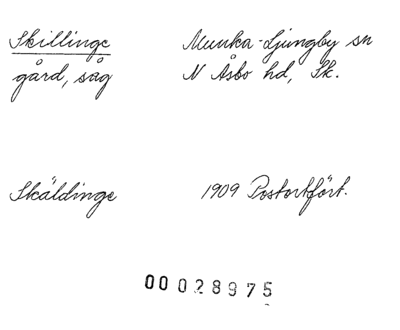 Skillinge Munka-Ljungby sn
gård, såg N Åsbo hd, Sk.
Skäldinge 1909 Postortfört.
00028975